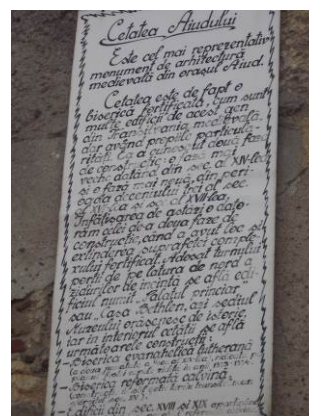 Cetatea Aiudului
Este cel mai reprezentativ
monument de arhitectură
medievală din orașul Aiud.
Cetatea este de fapt o
biserică fortificată, cum sunt
multe edificii de acest gen
din Transilvania medievală,
dar având propiile particula-
rități. Ea a cunoscut două faze
de construcție: o fază mai
veche datând din sec. al XIV-lea
și o fază mai nouă din peri-
oada deceniului trei al sec.
al XVII-lea
Înfățișarea de astăzi o dato-
răm celei de-a doua faze de
construcție, când a avut loc și
extinderea suprafeței comple-
xului fortificat. Adosat turnului
porții de pe latura de nord a
zidurilor de incintă se află edi-
ficiul numit "Palatul princiar"
sau "Casa Bethlen", azi sediul
Muzeului orășenesc de istorie,
iar în interiorul cetății se află
următoarele construcții:
- Biserica evanghelică lutherană
- Biserica reformată calvină:
- Edificii din sec. XVIII și XIX